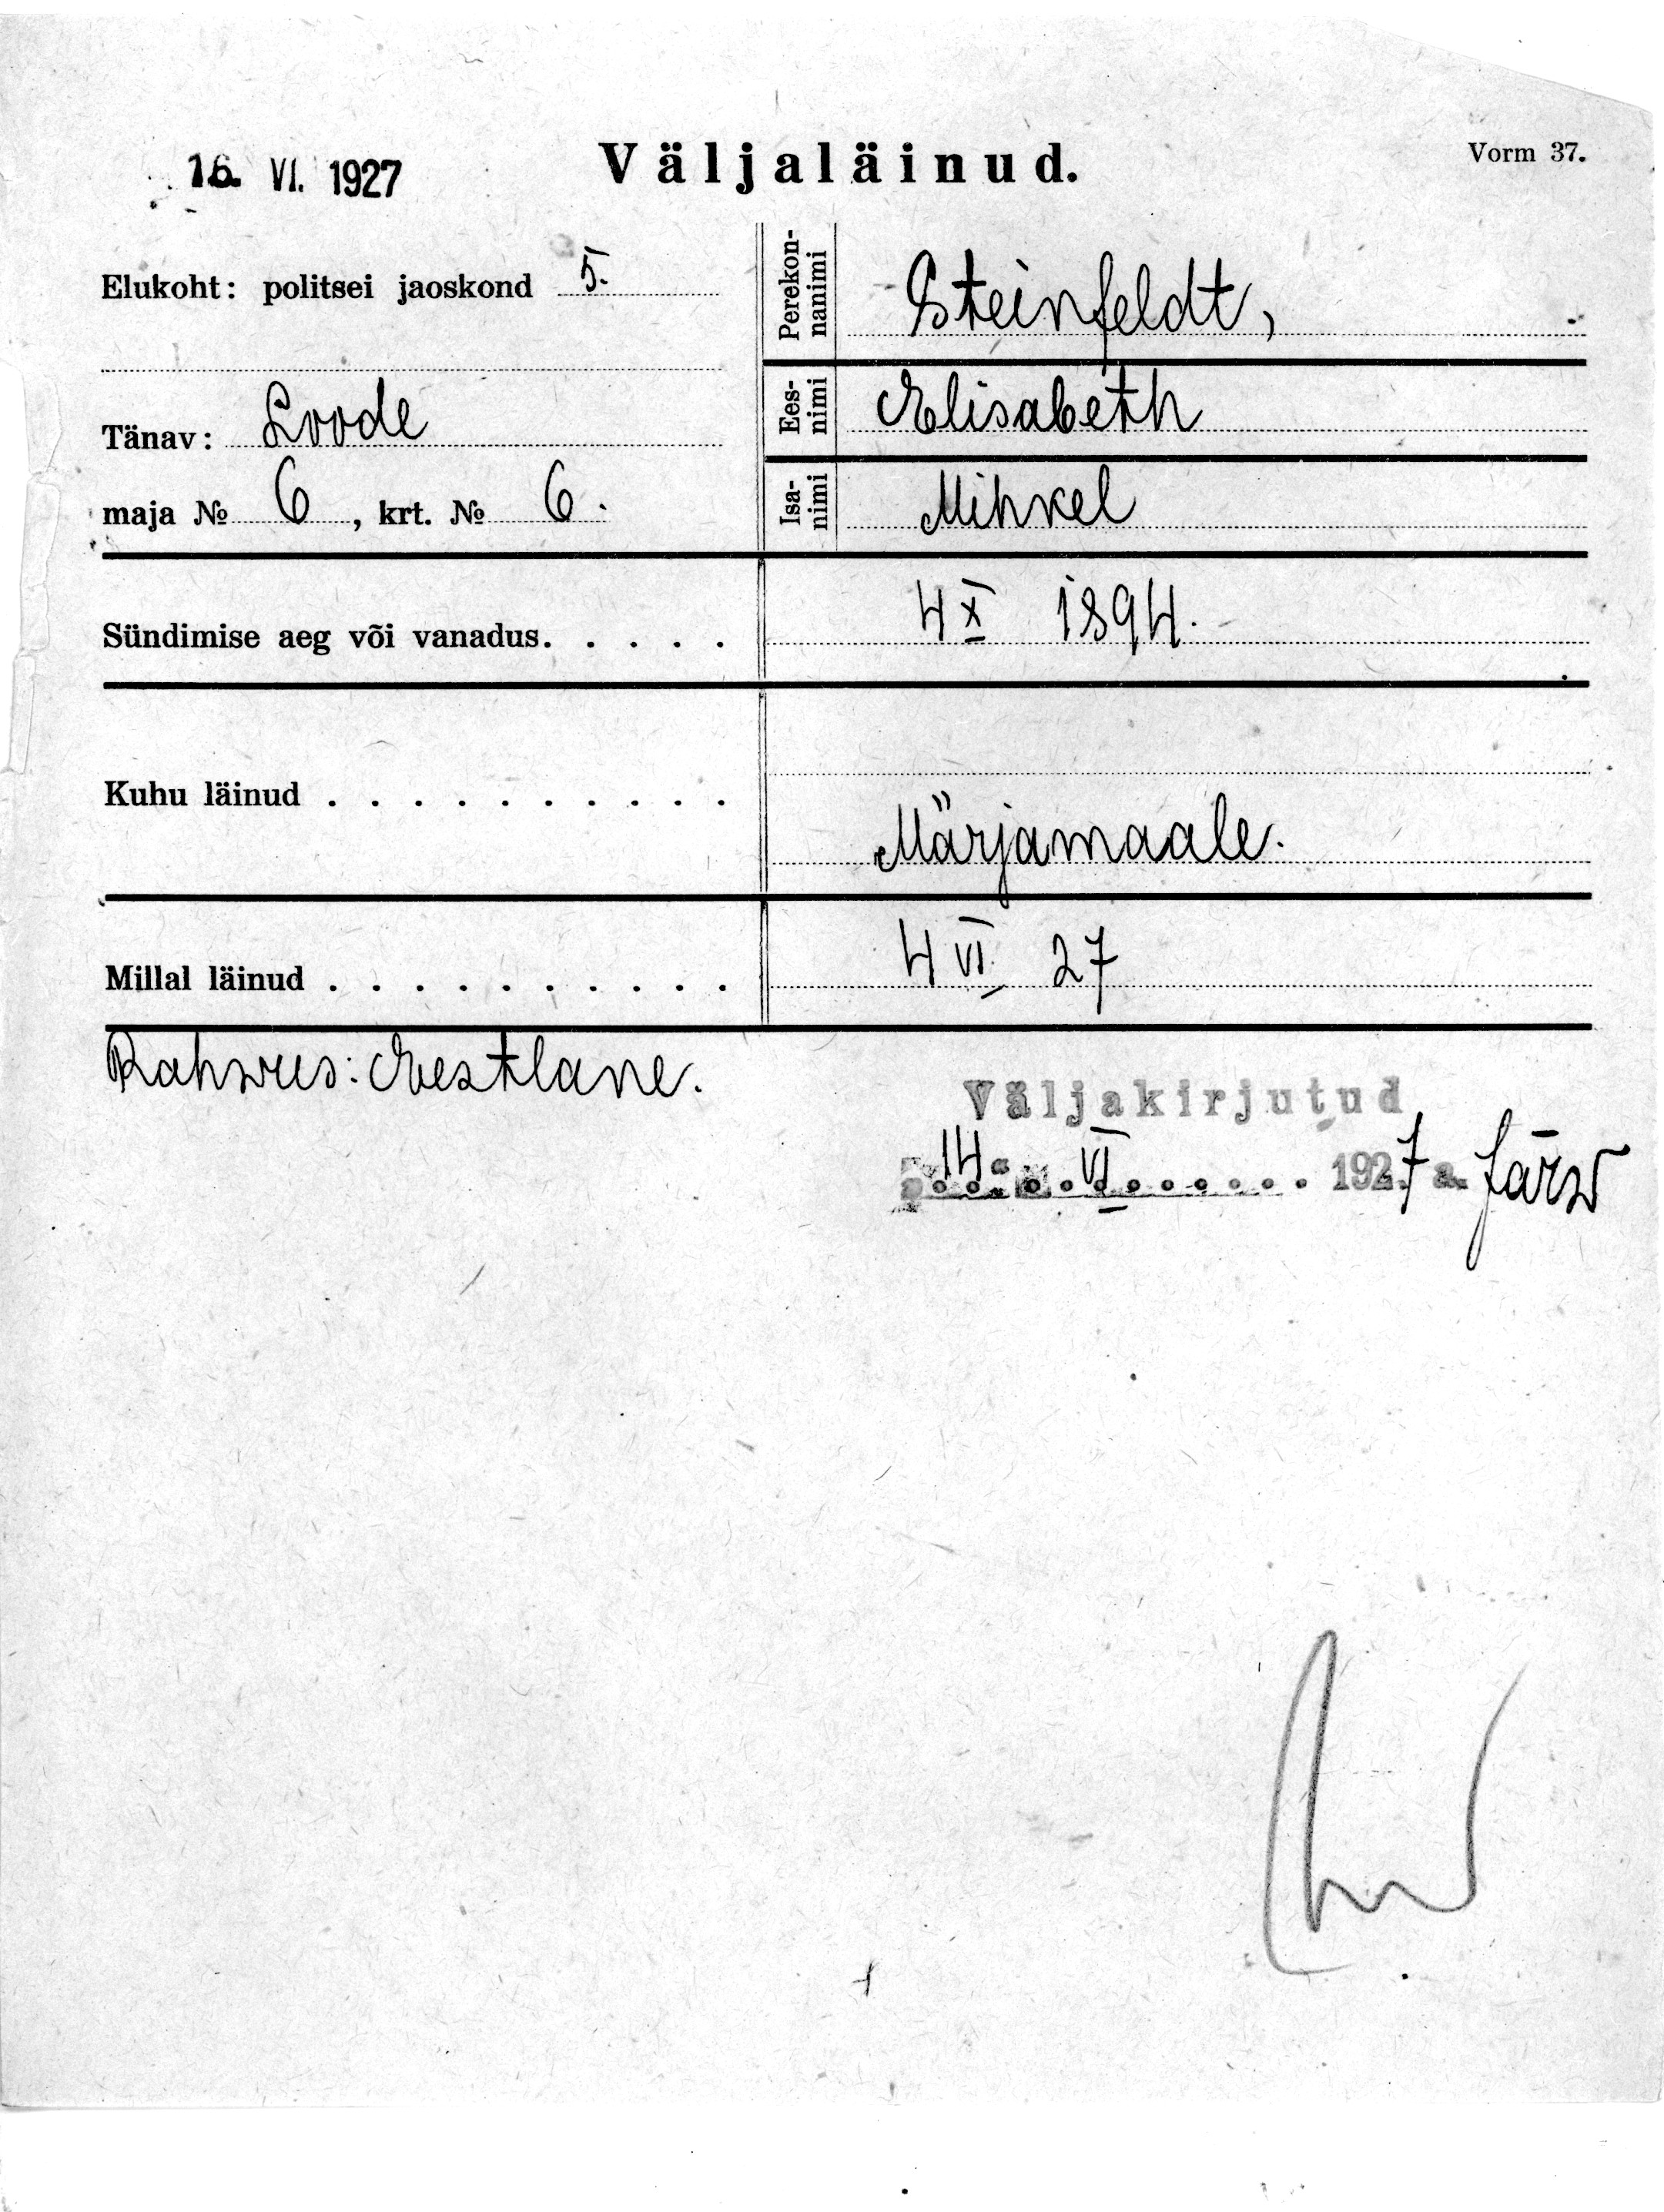 16. VI. 1927
Väljaläinud.
Vorm 37.
Elukoht: politsei jaoskond 5.
Tänav: Loode
maja № 6, krt. № 6.
Perekon-
nanimi
Steinfeldt,
Ees-
nimi
Elisabeth
Isa-
nimi
Mihkel
Sündimise aeg või vanadus. . . . .
4 X 1894.
Kuhu läinud . . . . . . . . . .
Märjamaale.
Millal läinud . . . . . . . . . .
4 VI 27
Rahwus: Eestlane.
Väljakirjutud
14. VI 1927 a. Järw